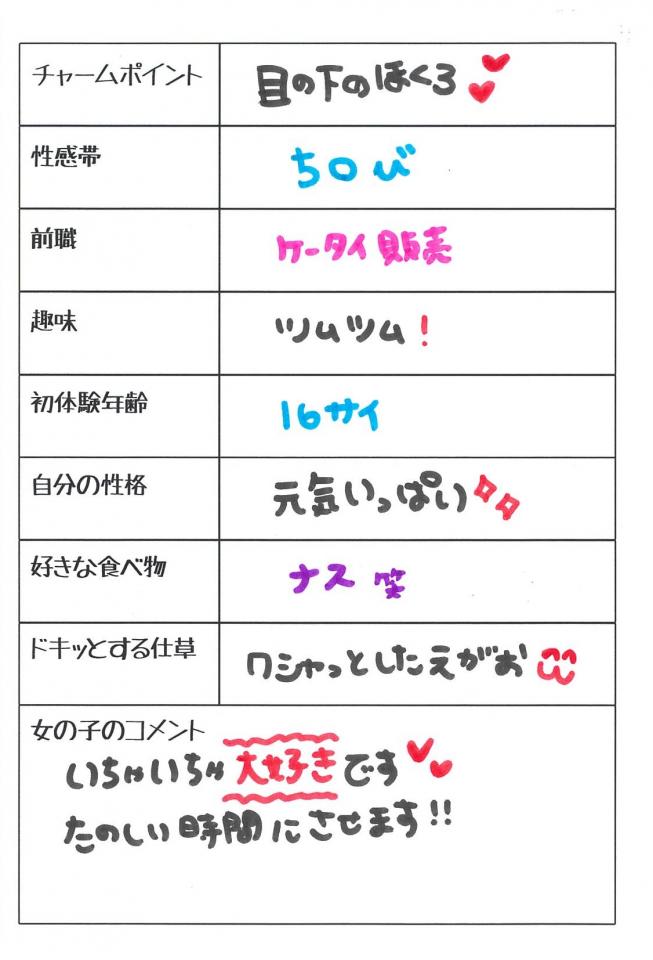 チャームポイント 目の下のほくろ
性感帯 ち〇び
前職 ケータイ販売
趣味 ツムツム!
初体験年齢 16サイ
自分の性格 元気いっぱい
好きな食べ物 ナス 笑
ドキッとする仕草 クシャっとしたえがお
女の子のコメント
いちゃいちゃ大好きです
たのしい時間にさせます!!